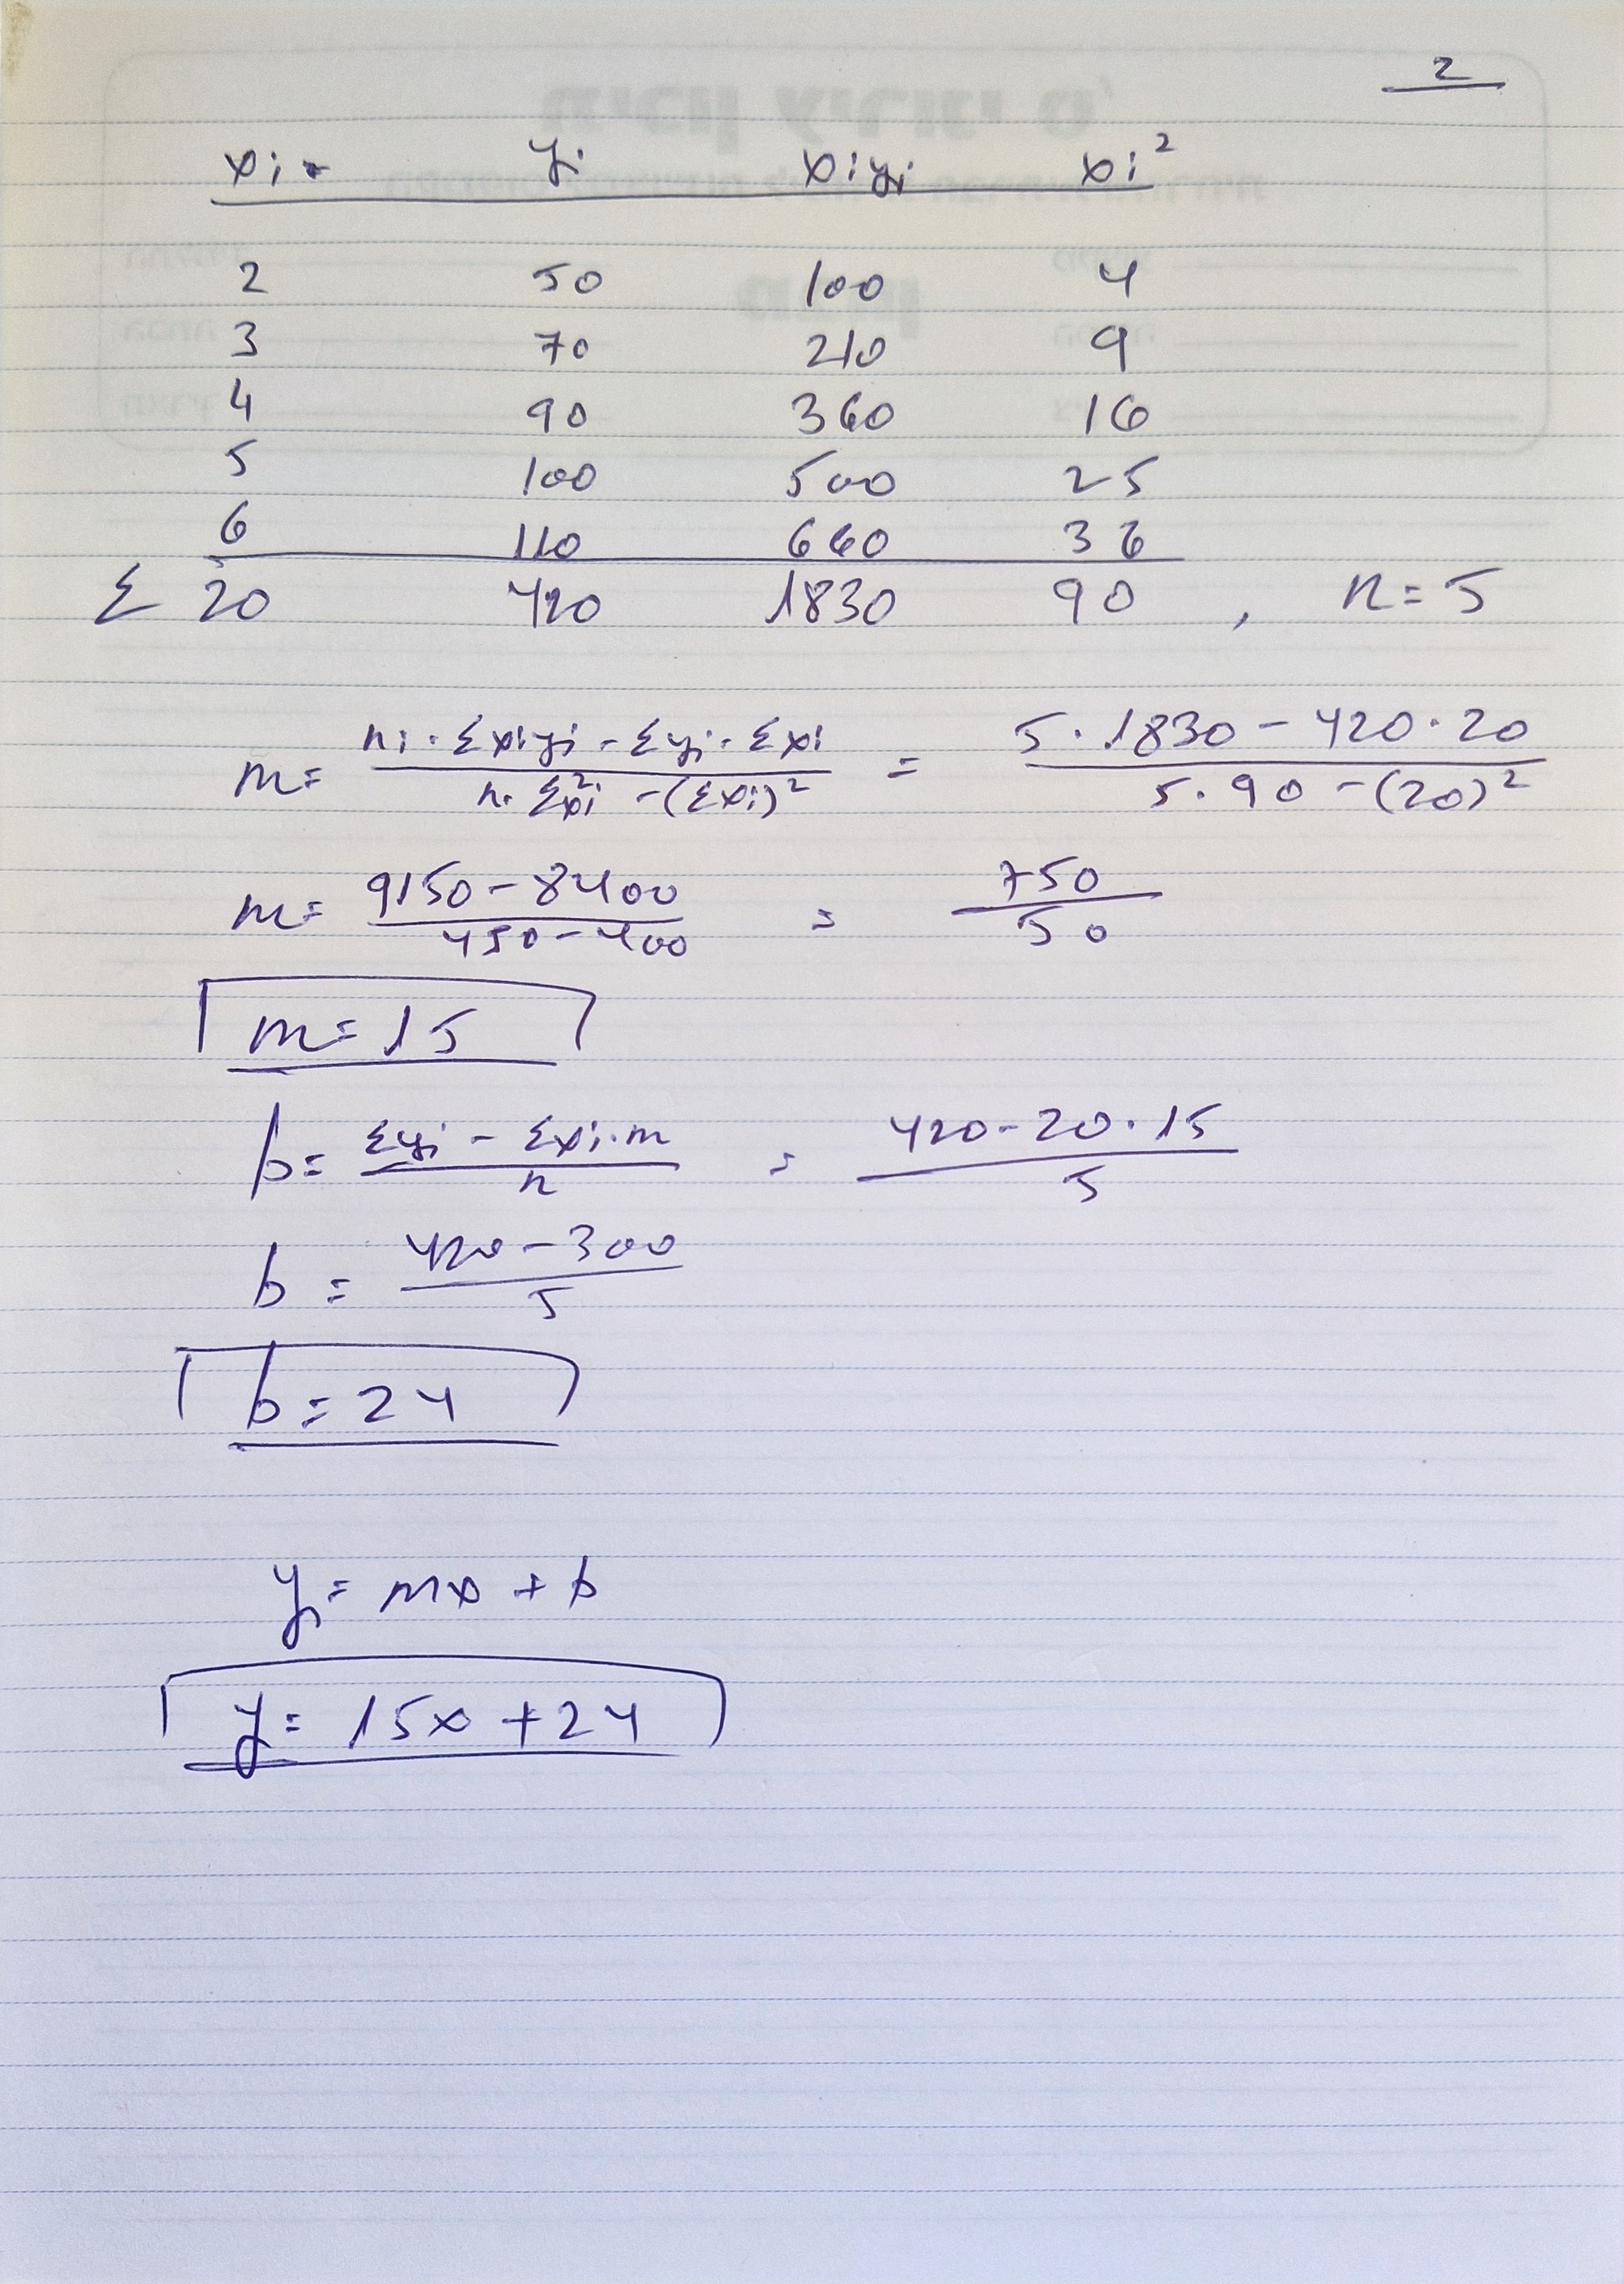 2
xi yi xiyi xi²
2 50 100 4
3 70 210 9
4 90 360 16
5 100 500 25
6 110 660 36
Σ 20 420 1830 90 , n=5
m= (ni·Σxiyi - Σyi·Σxi)/(n·Σxi² - (Σxi)²) = (5·1830 - 420·20)/(5·90 - (20)²)
m= (9150-8400)/(450-400) = 750/50
m=15
b= (Σyi - Σxi·m)/n = (420-20·15)/5
b= (420-300)/5
b=24
y= mx + b
y= 15x+24